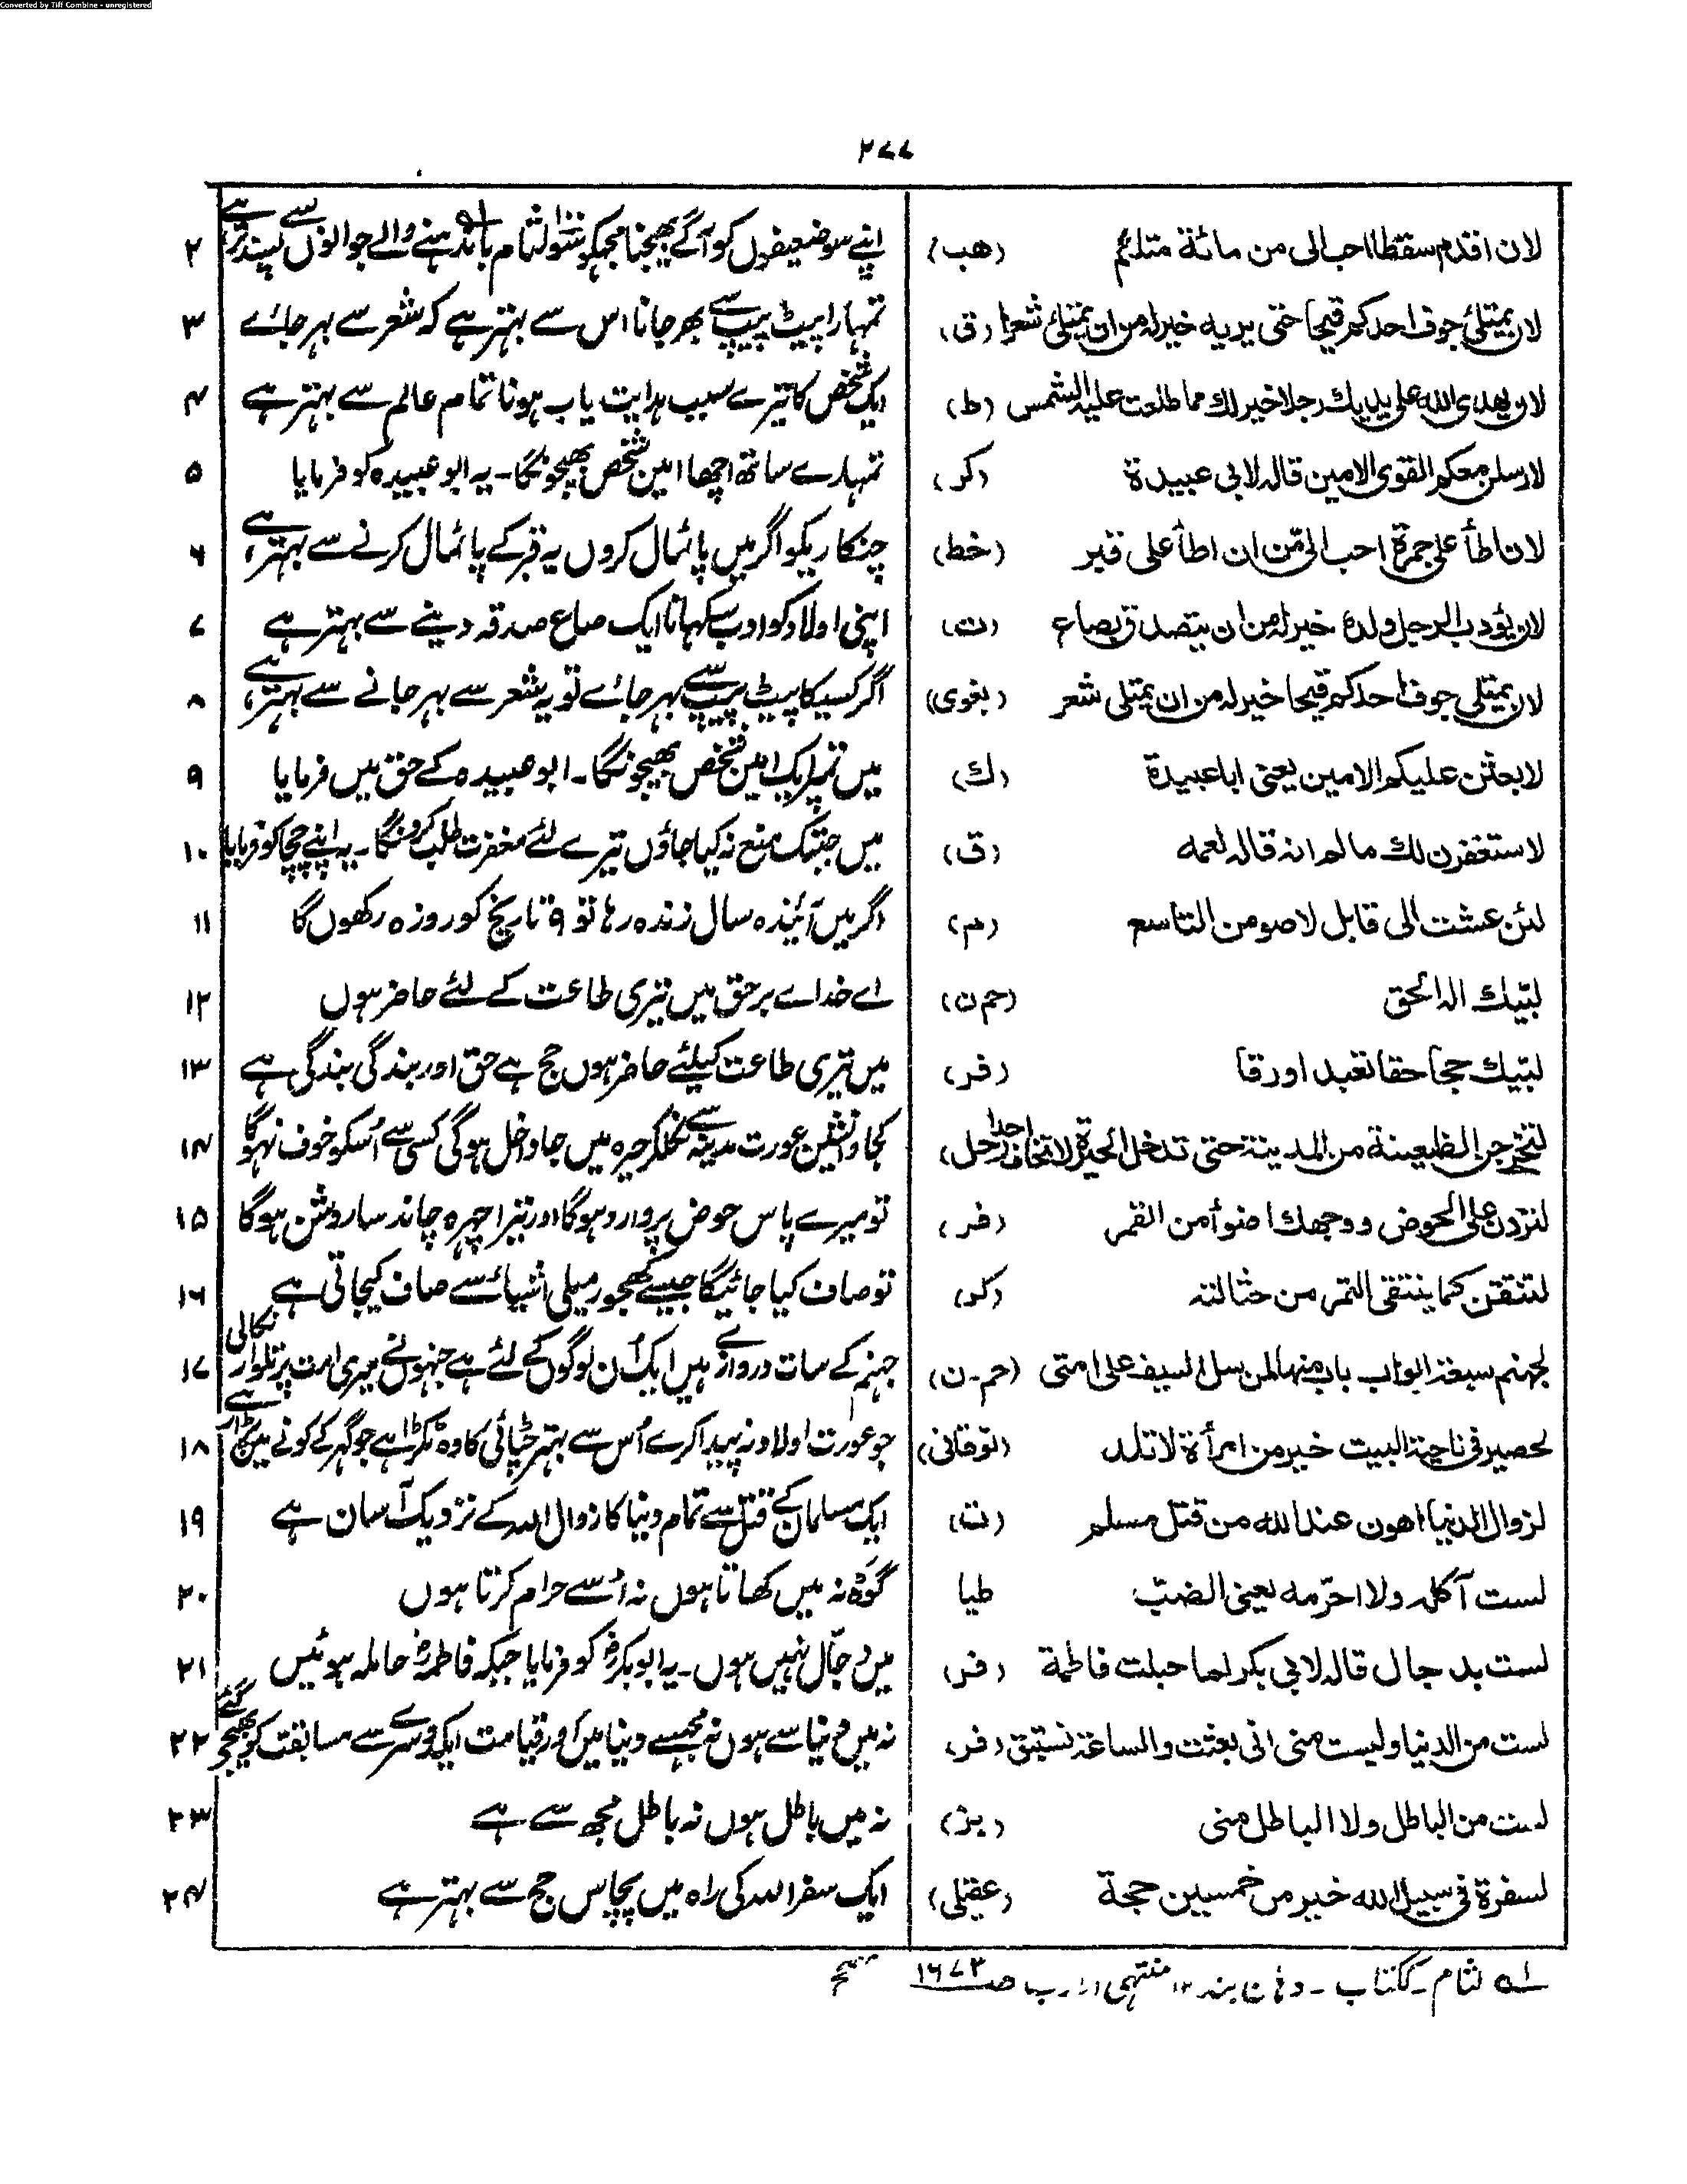 Converted by Tiff Combine - unregistered
۲۷۷
لان اقدم سقطا احب الى من مائة متلئم (هب) اپنے سو ضعیفوں کو آگے بھیجنا مجہکو سو لثام باندہنے والے جوانوں سے پسند تر ہے ۲
لان يمتلئ جوف احدكم قيحا حتى يريه خير له من ان يمتلئ شعرا (ق) تمہارا پیٹ پیپ سے بھر جانا اس سے بہتر ہے کہ شعر سے بہر جائے ۳
لان يهدى الله على يديك رجلا خير لك مما طلعت عليه الشمس (ط) ایک شخص کا تیرے سبب ہدایت یاب ہونا تمام عالم سے بہتر ہے ۴
لارسلن معكم القوى الامين قاله لابى عبيدة (كر) تمہارے ساتھ اچھا امین شخص بھیجونگا۔ یہ ابو عبیدہ کو فرمایا ۵
لان اطأ على جمرة احب الىّ من ان اطأ على قبر (خط) چنکاریکو اگر میں پائمال کروں یہ قبر کے پائمال کرنے سے بہتر ہے ۶
لان يؤدب الرجل ولده خير له من ان يتصدق بصاع (ت) اپنی اولاد کو ادب سکہانا ایک صاع صدقہ دینے سے بہتر ہے ۷
لان يمتلى جوف احدكم قيحا خير له من ان يمتلى شعر (بغوى) اگر کسیکا پیٹ پیپ سے بہر جائے تو یہ شعر سے بہر جانے سے بہتر ہے ۸
لابعثن عليكم الامين يعنى اباعبيدة (ك) میں تمپر ایک امین شخص بھیجونگا۔ ابو عبیدہ کے حق میں فرمایا ۹
لاستغفرن لك مالم انه قاله لعمه (ق) میں جبتک منع نہ کیا جاؤں تیرے لئے مغفرت طلب کرونگا۔ یہ اپنے چچا کو فرمایا ۱۰
لئن عشت الى قابل لاصومن التاسع (م) اگر میں آئیندہ سال زندہ رہا تو ۹ تاریخ کو روزہ رکھوں گا ۱۱
لبّيك اله الحق (حم ن) اے خداے برحق میں تیری طاعت کے لئے حاضر ہوں ۱۲
لبّيك حجا حقا تعبد اورقا (فر) میں تیری طاعت کیلئے حاضر ہوں حج ہے حق اور بندگی بندگی ہے ۱۳
لتخرجن الظعينة من المدينة حتى تدخل الحيرة لا تخاف احدا (حل) کجاوہ نشین عورت مدینہ سے نکلکر حیرہ میں جا داخل ہوگی کسی سے اُسکو خوف نہوگا ۱۴
لتردن على الحوض ووجهك اضوأ من القمر (فر) تو میرے پاس حوض پر وارد ہوگا اور تیرا چہرہ چاند سا روشن ہوگا ۱۵
لتنقن كما ينتقى التمر من حثالته (كر) تو صاف کیا جائیگا جیسے کھجور میلی اشیاء سے صاف کیجاتی ہے ۱۶
لجهنم سبعة ابواب باب منها لمن سل السيف على امتى (حم۔ن) جہنم کے سات دروازے ہیں ایک اُن لوگوں کے لئے ہے جنہوں نے میری امت پر تلوار نکالی ہے ۱۷
لحصير فى ناحية البيت خير من امرأة لا تلد (توقانى) جو عورت اولاد نہ پیدا کرے اُس سے بہتر چٹائی کا وہ ٹکڑا ہے جو گہر کے کونے میں پڑا ہے ۱۸
لزوال الدنيا اهون عند الله من قتل مسلم (ت) ایک مسلمان کے قتل سے تمام دنیا کا زوال اللہ کے نزدیک آسان ہے ۱۹
لست آكله ولا احرّمه يعنى الضبّ طيا گوہ نہ میں کھاتا ہوں نہ اُسے حرام کرتا ہوں ۲۰
لست بدجال قاله لابى بكر لما حبلت فاطمة (فر) میں دجّال نہیں ہوں۔ یہ ابو بکرؓ کو فرمایا جبکہ فاطمہؓ حاملہ ہوئیں ۲۱
لست من الدنيا وليست منى انى بعثت والساعة نستبق (فر) نہ میں دنیا سے ہوں نہ مجہسے دنیا میں اور قیامت ایک دوسرے سے مسابقت کو بھیجے گئے ۲۲
لست من الباطل ولا الباطل منى (بز) نہ میں باطل ہوں نہ باطل مجھ سے ہے ۲۳
لسفرة فى سبيل الله خير من خمسين حجة (عقيلى) ایک سفر اللہ کی راہ میں پچاس حج سے بہتر ہے ۲۴
لثام۔ ککتاب۔ دہان بند ۱۲ منتہی الارب صـ ۱۶۷۳